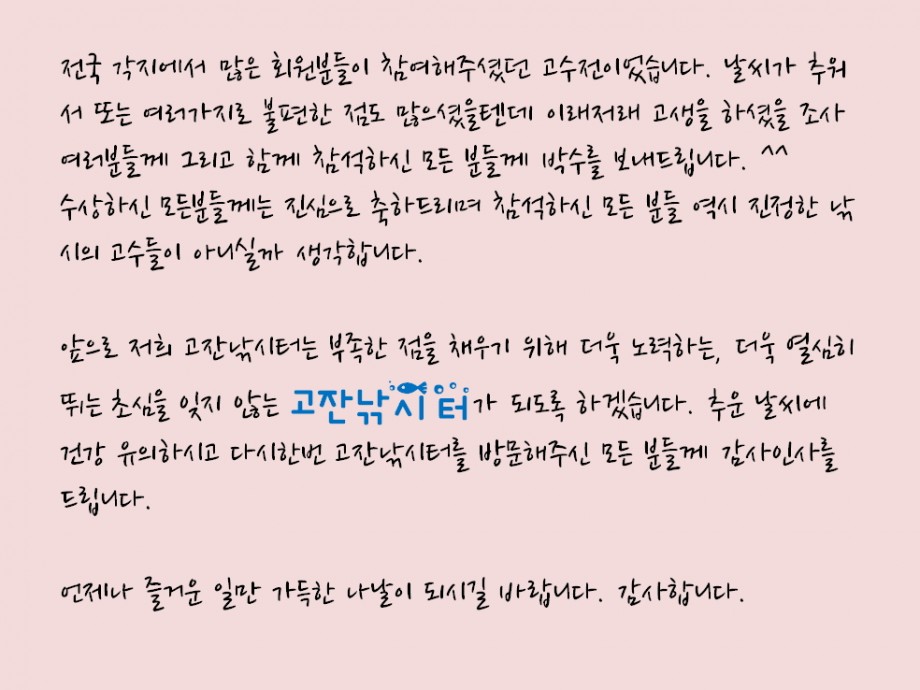 전국 각지에서 많은 회원분들이 참여해주셨던 고수전이었습니다. 날씨가 추워
서 또는 여러가지로 불편한 점도 많으셨을텐데 이래저래 고생을 하셨을 조사
여러분들께 그리고 함께 참석하신 모든 분들께 박수를 보내드립니다. ^^
수상하신 모든분들께는 진심으로 축하드리며 참석하신 모든 분들 역시 진정한 낚
시의 고수들이 아니실까 생각합니다.
앞으로 저희 고잔낚시터는 부족한 점을 채우기 위해 더욱 노력하는, 더욱 열심히
뛰는 초심을 잊지 않는 고잔낚시터가 되도록 하겠습니다. 추운 날씨에
건강 유의하시고 다시한번 고잔낚시터를 방문해주신 모든 분들께 감사인사를
드립니다.
언제나 즐거운 일만 가득한 나날이 되시길 바랍니다. 감사합니다.